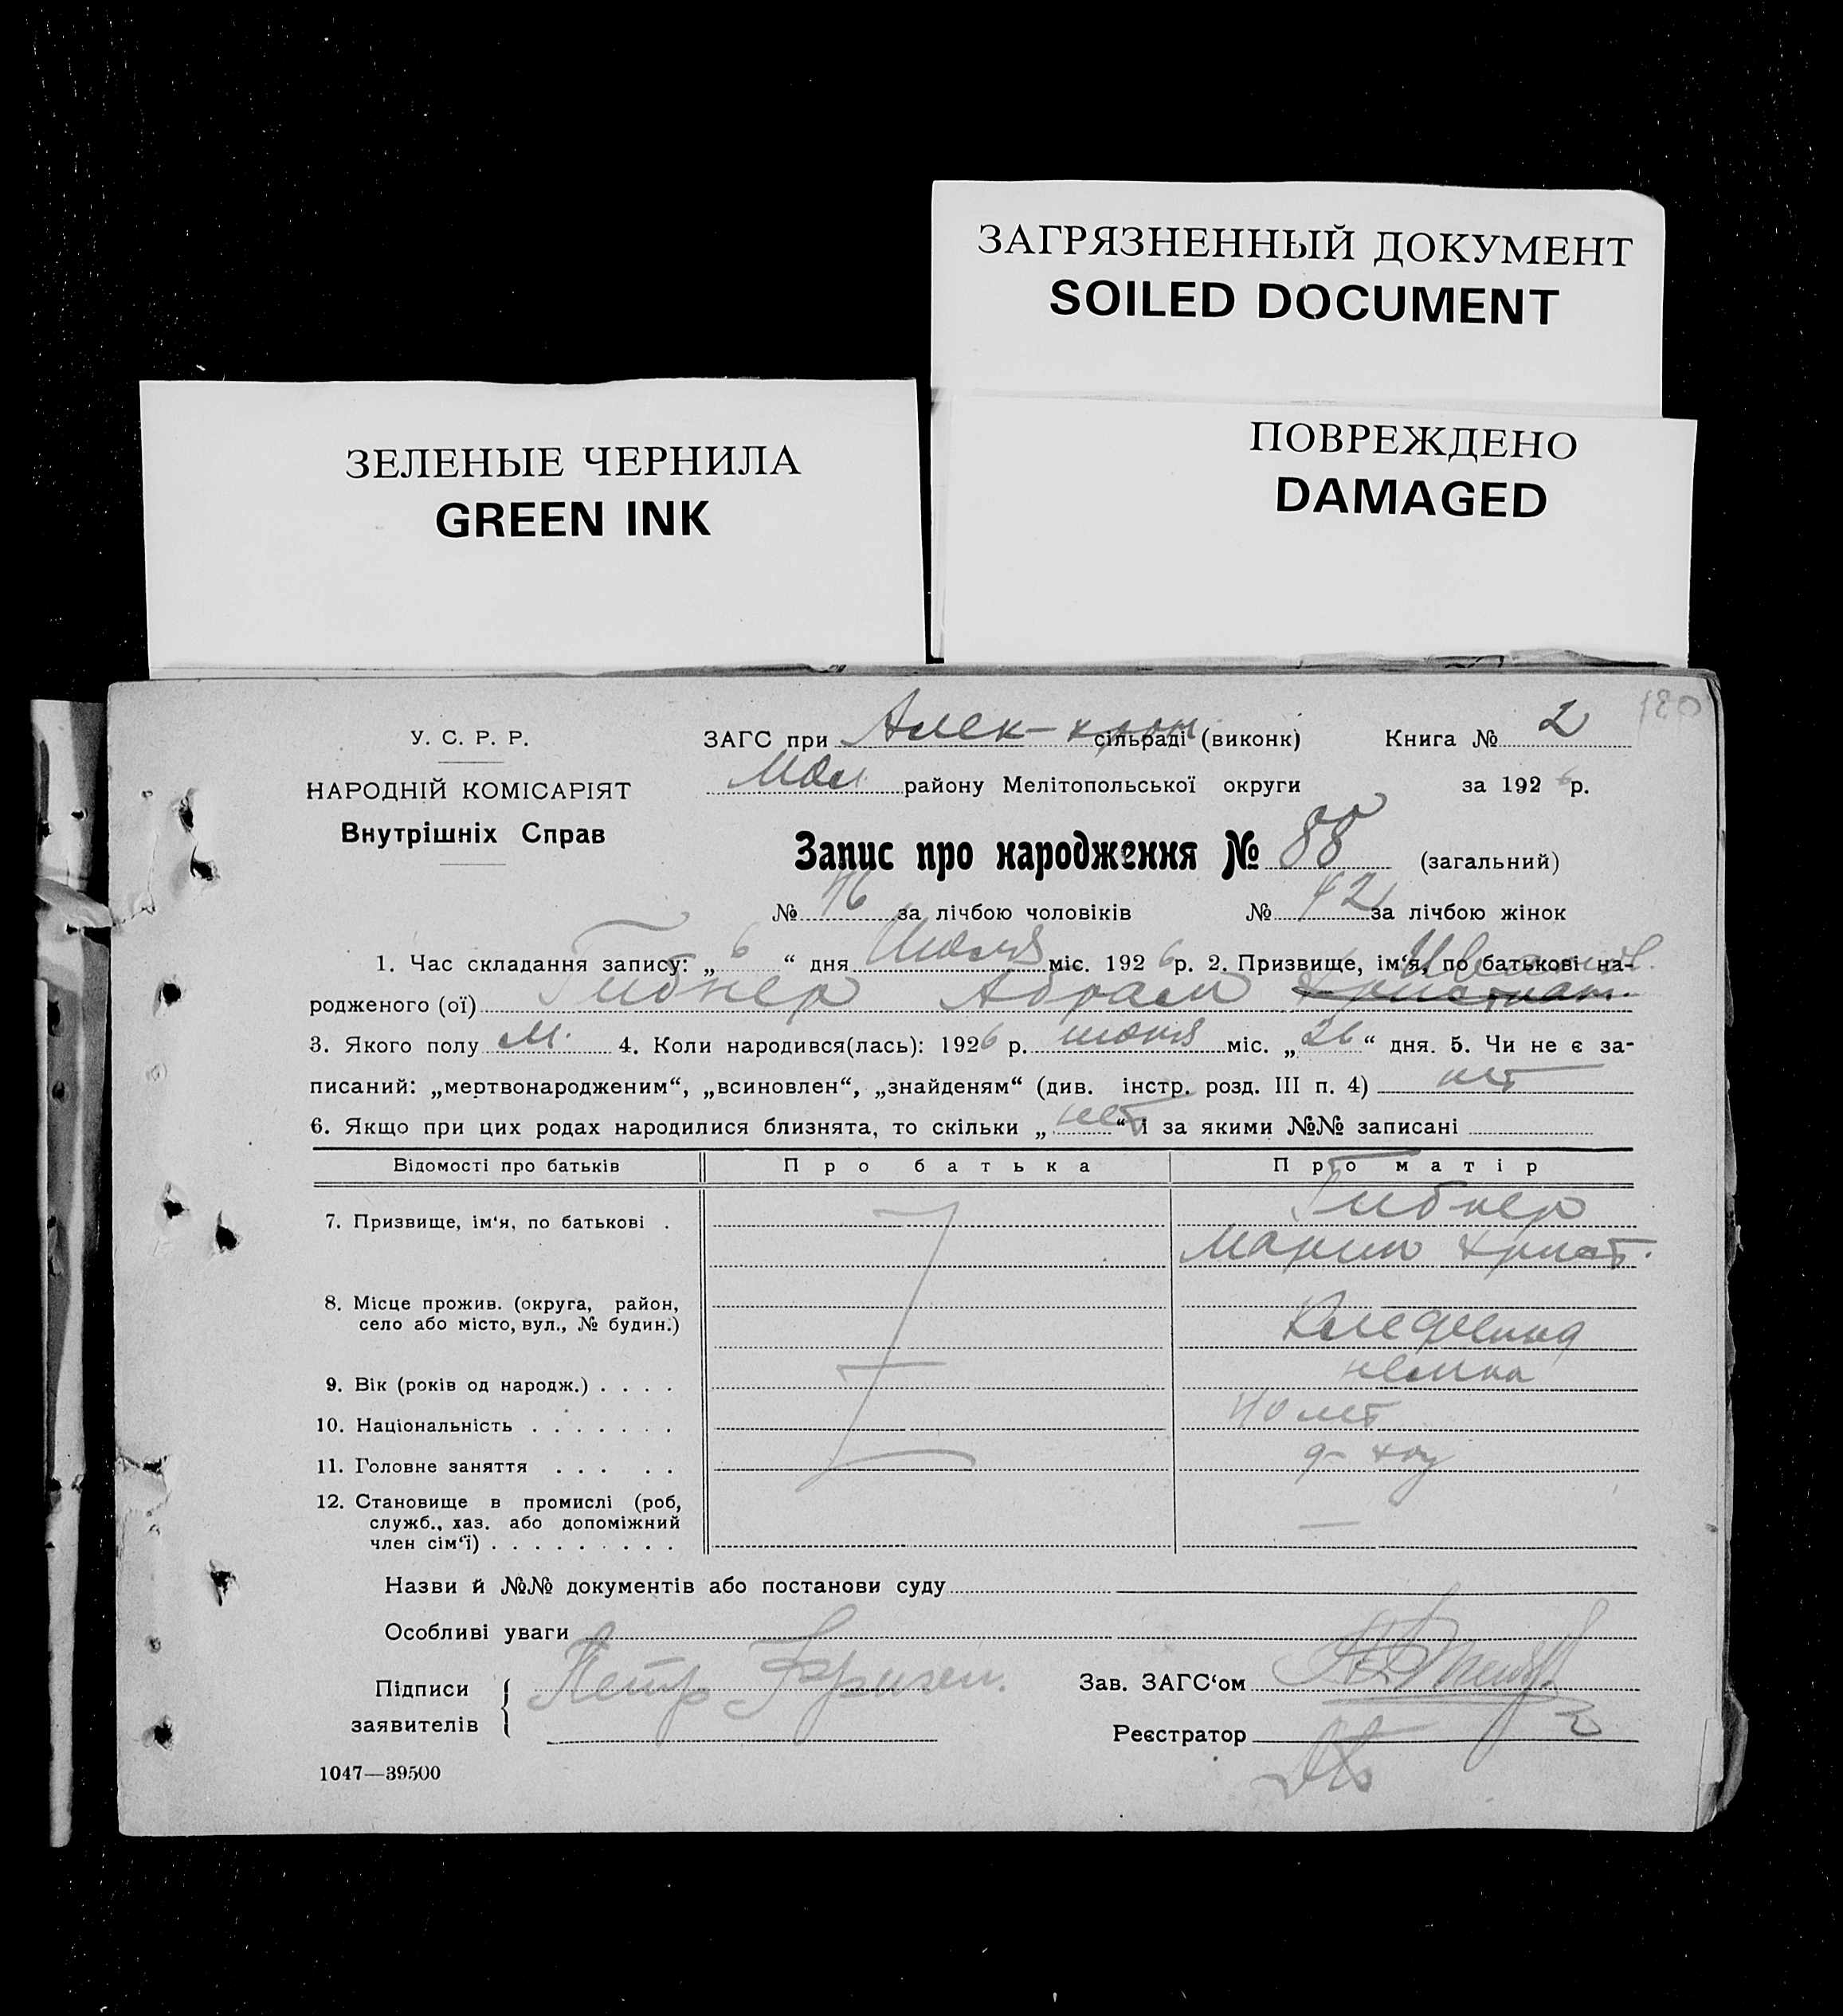 ЗАГРЯЗНЕННЫЙ ДОКУМЕНТ
SOILED DOCUMENT
ЗЕЛЕНЫЕ ЧЕРНИЛА
GREEN INK
ПОВРЕЖДЕНО
DAMAGED
180
У. С. Р. Р.
НАРОДНІЙ КОМІСАРІЯТ
Внутрішніх Справ
ЗАГС при Алек- сільраді (виконк) Книга № 2
Мол району Мелітопольської округи за 1926 р.
Запис про народження № 88 (загальний)
№ 46 за лічбою чоловіків № 42 за лічбою жінок
1. Час складання запису: „ 6 “ дня Июля міс. 1926 р. 2. Призвище, ім‘я, по батькові на-
родженого (ої) Гибнер Абрам
3. Якого полу М. 4. Коли народився(лась): 1926 р. июня міс. „ 26 “ дня. 5. Чи не є за-
писаний: „мертвонародженим“, „всиновлен“, „знайденям“ (див. інстр. розд. III п. 4) нет
6. Якщо при цих родах народилися близнята, то скільки „ нет “ і за якими №№ записані
Відомості про батьків Про батька Про матір
7. Призвище, ім‘я, по батькові . Гибнер
Мария Христ.
8. Місце прожив. (округа, район,
село або місто, вул., № будин.)
9. Вік (років од народж.) . . . . немка
10. Національність . . . . . . . 40 лет
11. Головне заняття . . . . . д- хоз
12. Становище в промислі (роб,
служб., хаз. або допоміжний
член сім‘ї) . . . . . . . . . —
Назви й №№ документів або постанови суду
Особливі уваги
Підписи
заявителів Петр Фризен.
Зав. ЗАГС‘ом
Реєстратор
1047—39500